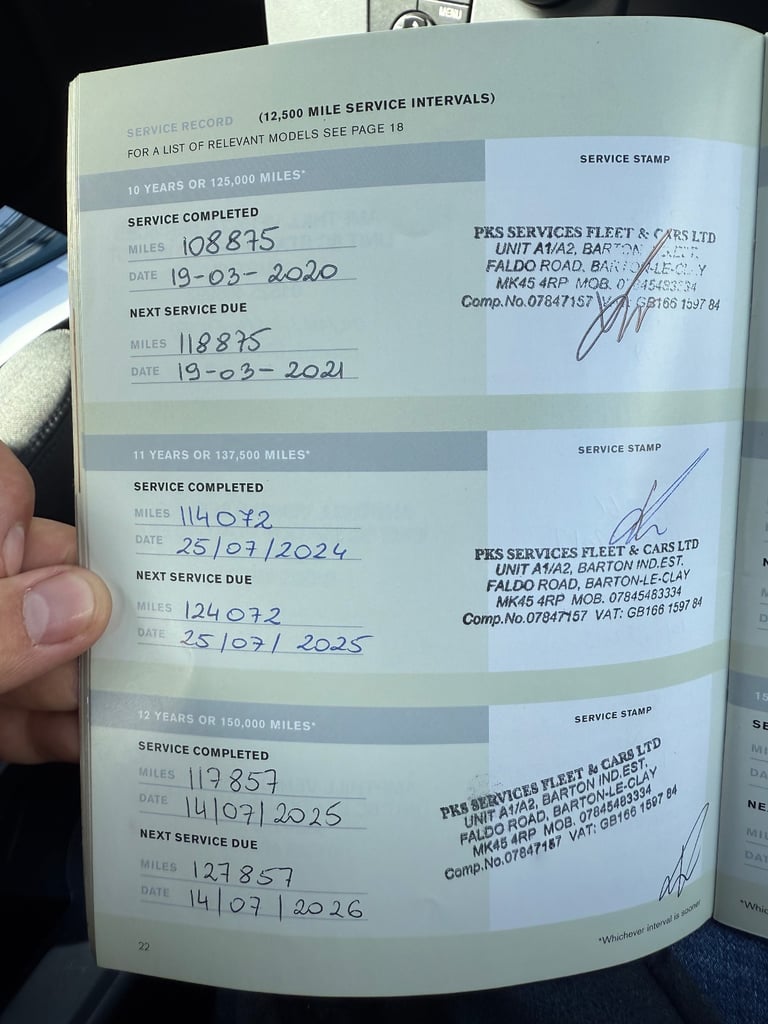 MENU
SERVICE RECORD (12,500 MILE SERVICE INTERVALS)
FOR A LIST OF RELEVANT MODELS SEE PAGE 18
10 YEARS OR 125,000 MILES*
SERVICE STAMP
SERVICE COMPLETED
MILES 108875
DATE 19-03-2020
NEXT SERVICE DUE
MILES 118875
DATE 19-03-2021
PKS SERVICES FLEET & CARS LTD
UNIT A1/A2, BARTON
FALDO ROAD,
MK45 4RP MOB.
Comp.No.07847157 GB166 1597 84
11 YEARS OR 137,500 MILES*
SERVICE STAMP
SERVICE COMPLETED
MILES 114072
DATE 25/07/2024
NEXT SERVICE DUE
MILES 124072
DATE 25/07/2025
PKS SERVICES FLEET & CARS LTD
UNIT A1/A2, BARTON IND.EST.
FALDO ROAD, BARTON-LE-CLAY
MK45 4RP MOB. 07845483334
Comp.No.07847157 VAT: GB166 1597 84
12 YEARS OR 150,000 MILES*
SERVICE STAMP
SERVICE COMPLETED
MILES 117857
DATE 14/07/2025
NEXT SERVICE DUE
MILES 127857
DATE 14/07/2026
PKS SERVICES FLEET & CARS LTD
UNIT A1/A2, BARTON IND.EST.
FALDO ROAD, BARTON-LE-CLAY
MK45 4RP MOB. 07845483334
Comp.No.07847157 VAT: GB166 1597 84
*Whichever interval is sooner
22